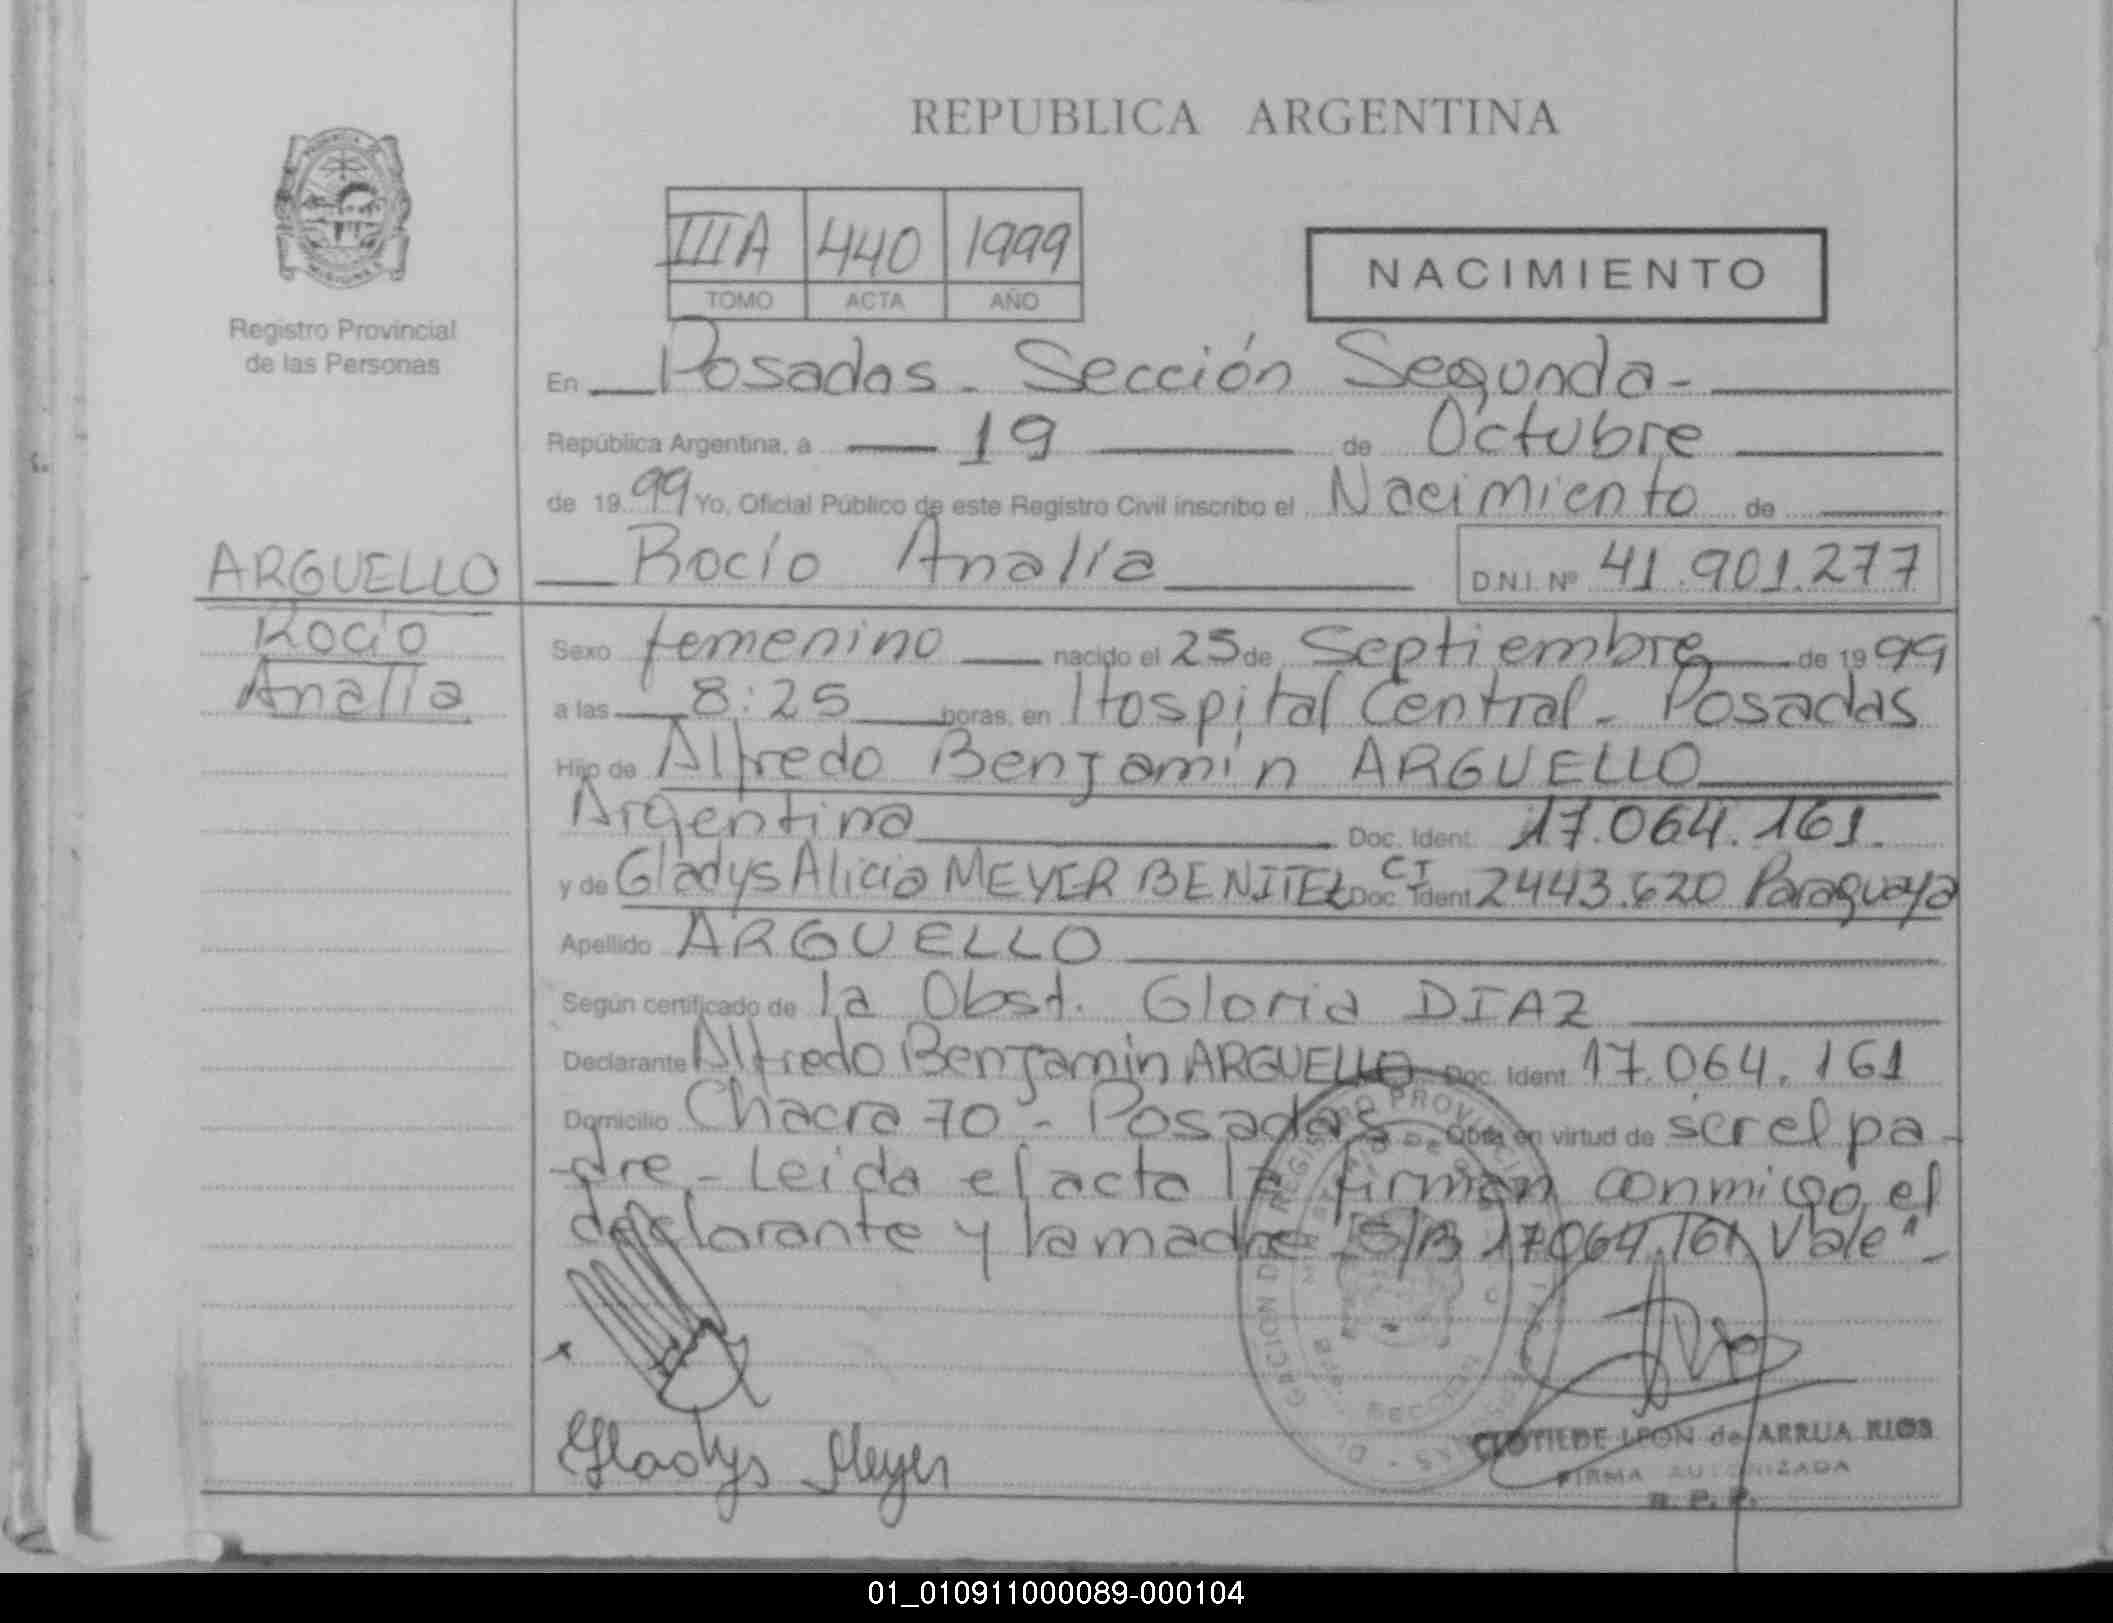 REPUBLICA ARGENTINA
IIIA 440 1999
TOMO ACTA AÑO
NACIMIENTO
Registro Provincial
de las Personas
En Posadas - Sección Segunda -
República Argentina, a 19 de Octubre
de 1999 Yo, Oficial Público de este Registro Civil inscribo el Nacimiento de
Rocío Analía D.N.I. Nº 41.901.277
ARGUELLO
Rocío
Analía
Sexo femenino nacido el 25 de Septiembre de 1999
a las 8:25 horas, en Hospital Central - Posadas
Hijo de Alfredo Benjamín ARGUELLO
Argentina Doc. Ident. 17.064.161.
y de Gladys Alicia MEYER BENITEZ Doc. Ident CI 2443.620 Paraguaya
Apellido ARGUELLO
Según certificado de la Obst. Gloria DIAZ
Declarante Alfredo Benjamín ARGUELLO Doc. Ident. 17.064.161
Domicilio Chacra 70 - Posadas Obra en virtud de ser el pa-
dre - Leida el acta la firman conmigo el
declarante y la madre "S/B 17.064.161 Vale" -
Gladys Meyer
CLOTILDE LEON de ARRUA RIOS
FIRMA AUTORIZADA
R. P. P.
01_010911000089-000104